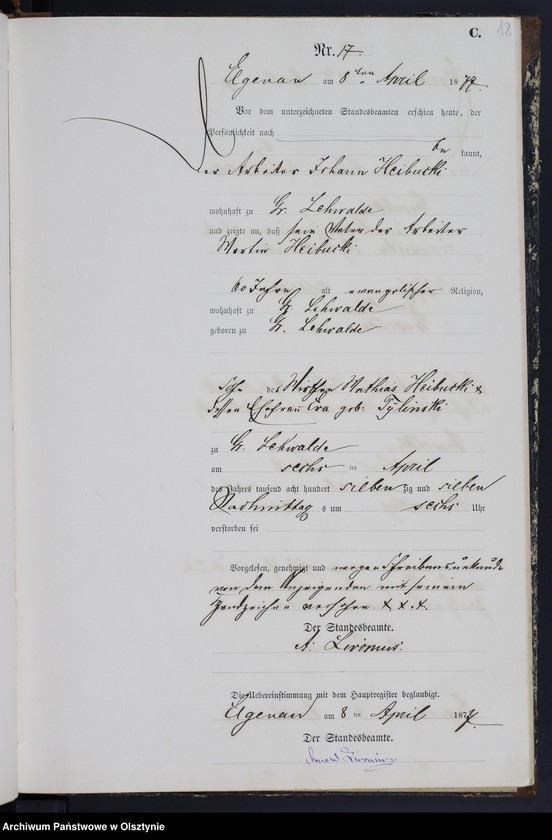 18
C.
Nr. 17.
Elgenau am 8 ten April 1877.
Vor dem unterzeichneten Standesbeamten erschien heute, der
Persönlichkeit nach
be kannt,
der Arbeiter Johann
wohnhaft zu Gr. Lehwalde
und zeigte an, daß sein Vater der Arbeiter
Martin
60 Jahre alt evangelischer Religion,
wohnhaft zu Gr. Lehwalde
geboren zu Gr. Lehwalde
Sohn des Wirthen Mathias &
dessen Ehefrau Eva geb: Tylinski
zu Gr. Lehwalde
am sechs ten April
des Jahres tausend acht hundert sieben zig und sieben
Nachmittag s um sechs Uhr
verstorben sei
Vorgelesen, genehmigt und wegen Schreibensunkunde
von dem Anzeigenden mit seinem
Handzeichen versehen. + + +.
Der Standesbeamte.
A:
Die Uebereinstimmung mit dem Hauptregister beglaubigt.
Elgenau am 8 ten April 1877.
Der Standesbeamte.
Archiwum Państwowe w Olsztynie